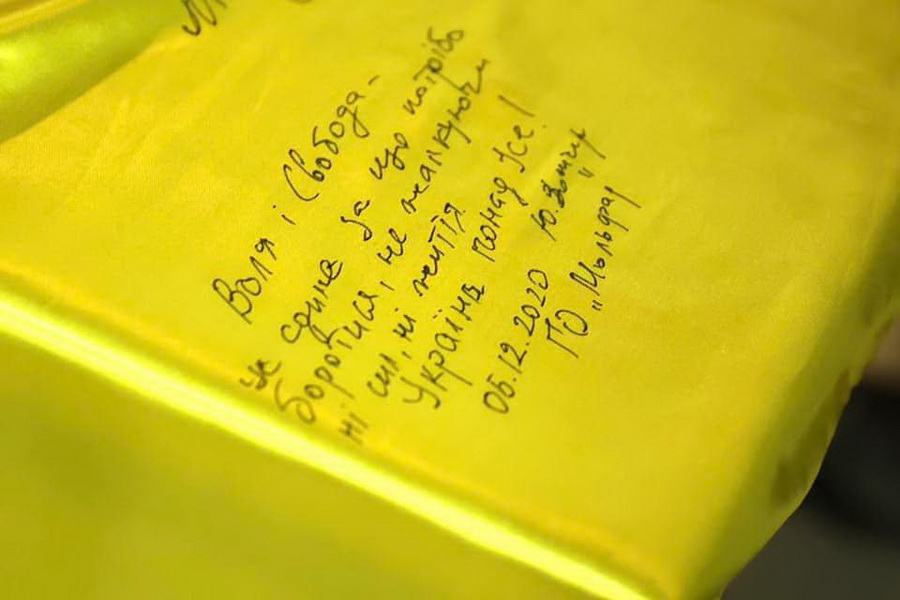 Воля і Свобода -
це єдине за що потрібо
боротися, не жалкуючи
ні сил, ні життя
Україна понад усе!
05.12.2020 Ю.
ГО „Мольфар"